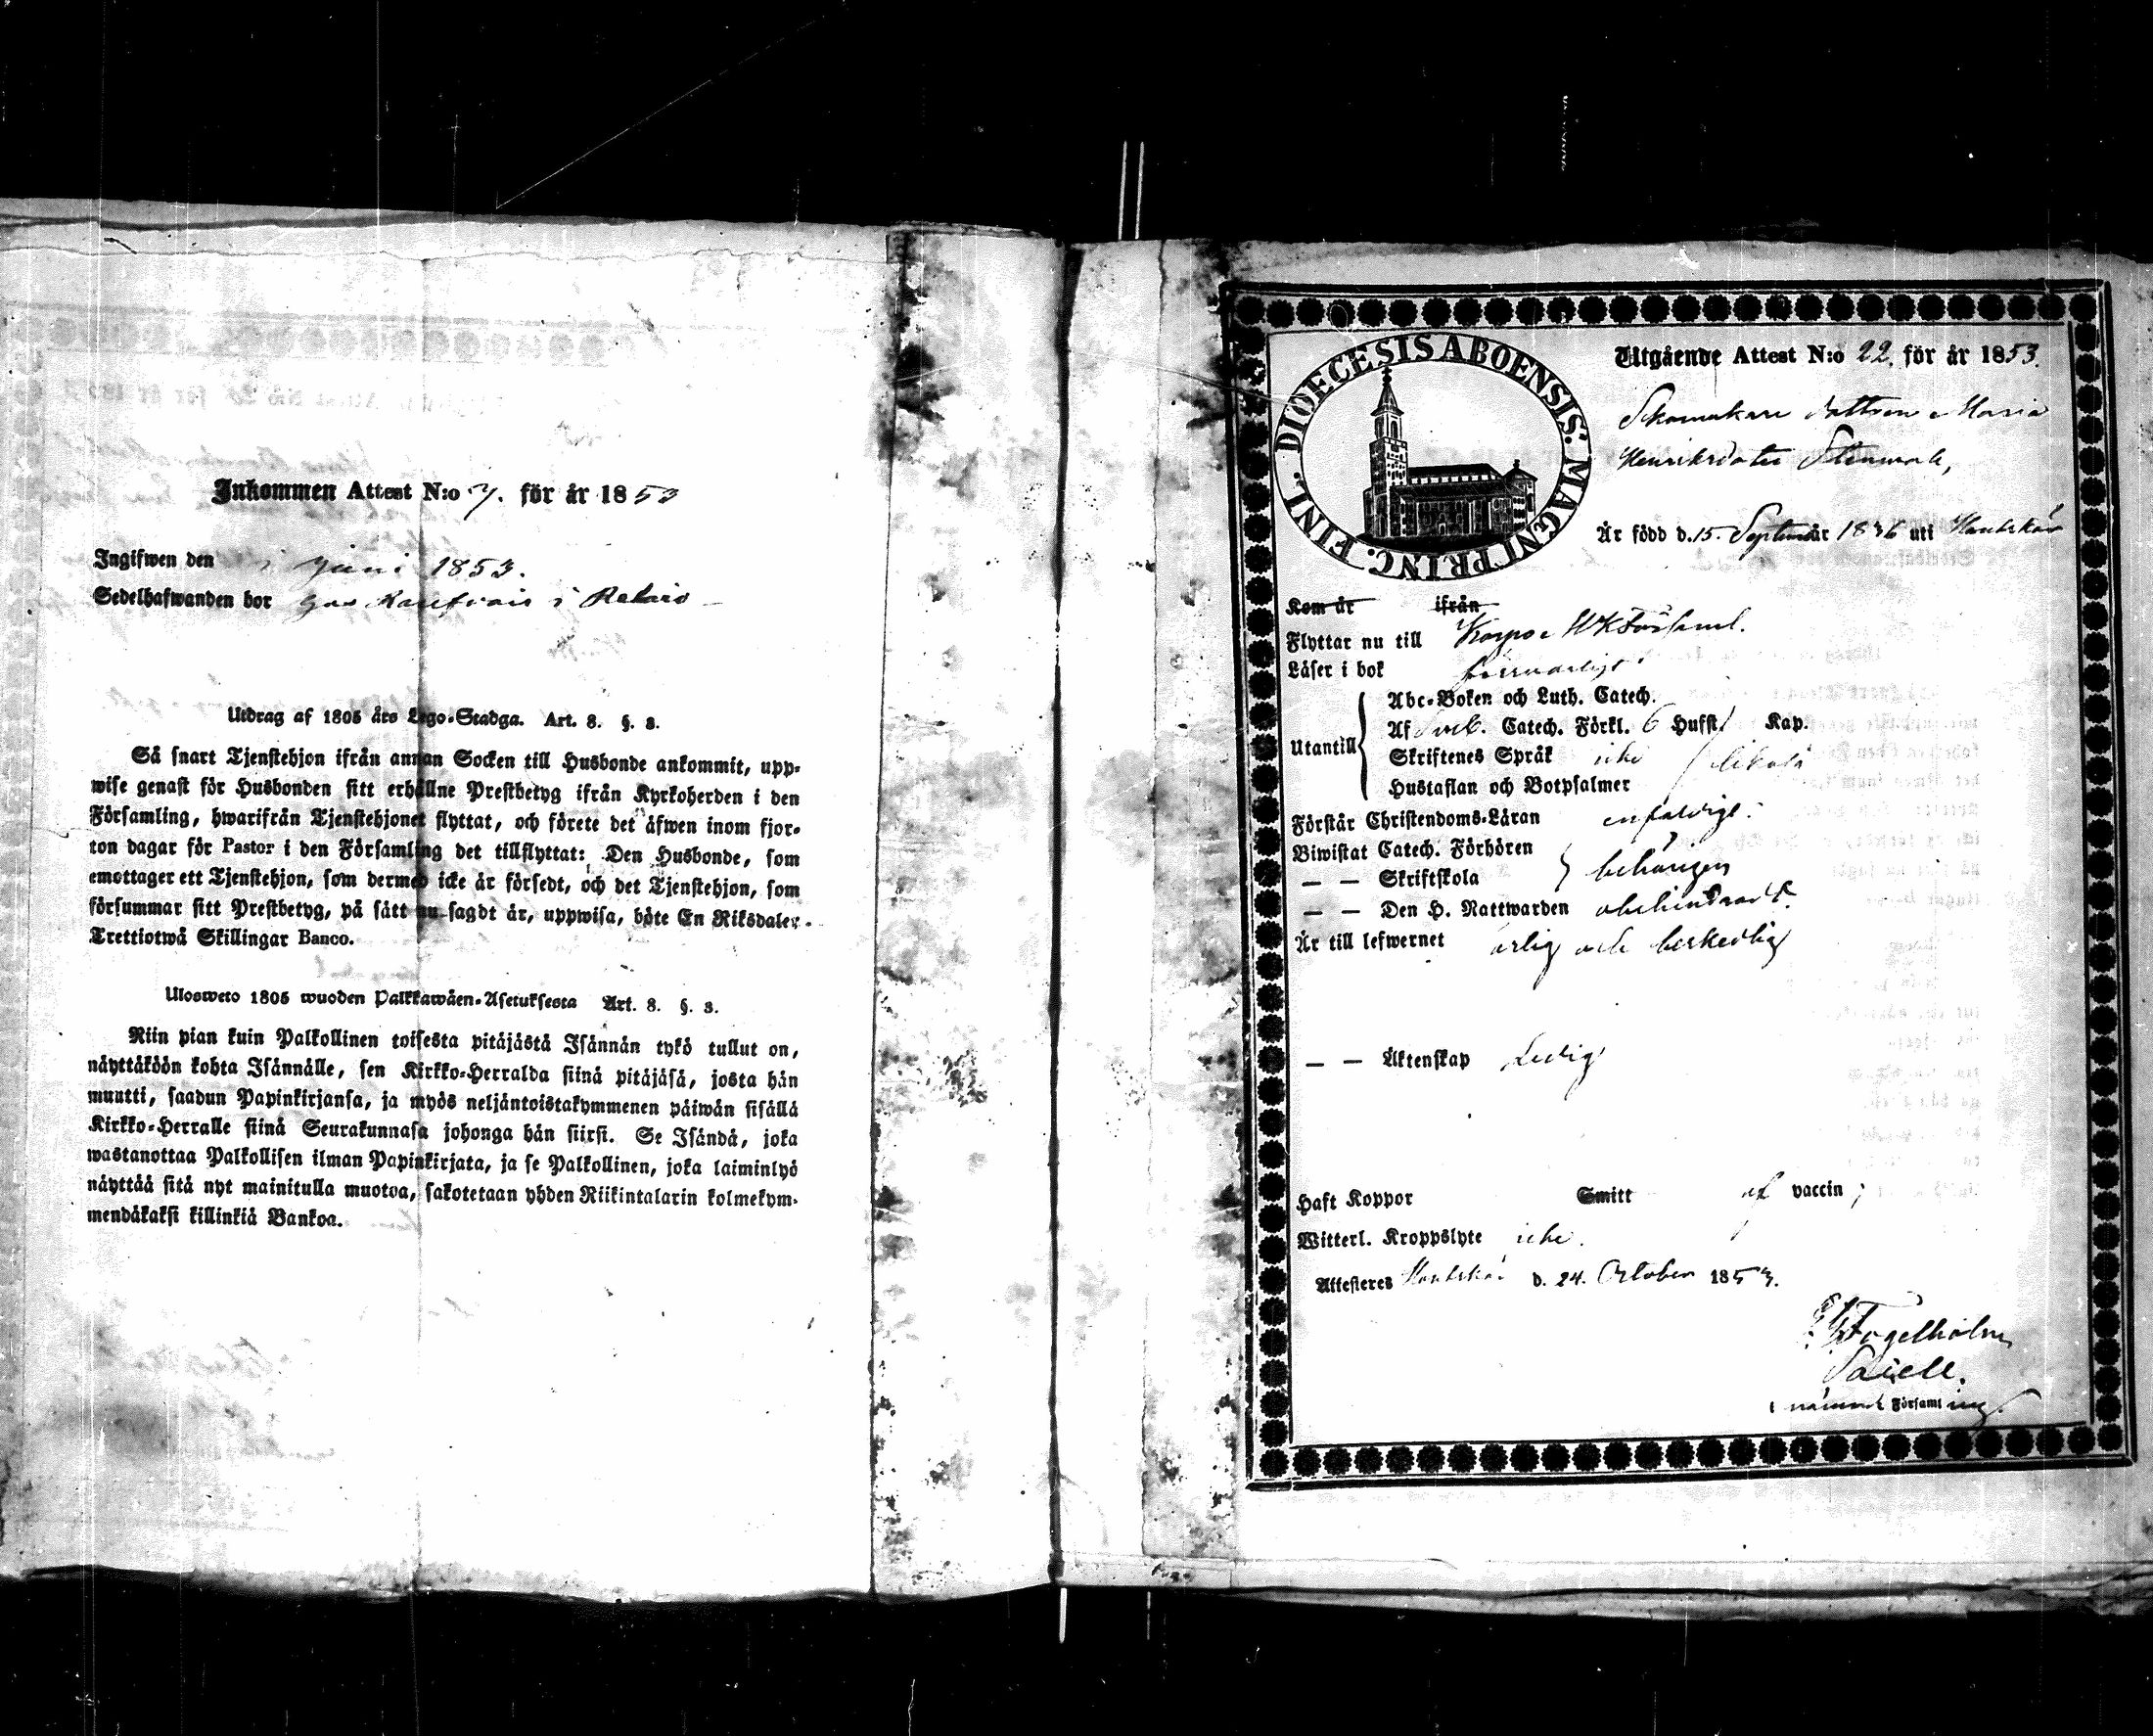 Inkommen Attest N:o 7. för år 1853
Ingifwen den i Juni 1853.
Sedelhafwanden bor hos i
Utdrag af 1805 års Lego-Stadga. Art. 8. §. 3.
Så snart Tjenstehjon ifrån annan Socken till Husbonde ankommit, upp-
wise genast för Husbonden sitt erhållne Prestbetyg ifrån Kyrkoherden i den
Församling, hwarifrån Tjenstehjonet flyttat, och förete det äfwen inom fjor-
ton dagar för Pastor i den Församling det tillflyttat: Den Husbonde, som
emottager ett Tjenstehjon, som dermed icke är försedt, och det Tjenstehjon, som
försummar sitt Prestbetyg, på sätt nu sagdt är, uppwisa, böte En Riksdaler
Trettiotwå Skillingar Banco.
Ulosweto 1805 wuoden Palkkawäen-Asetuksesta Art. 8. §. 3.
Niin pian kuin Palkollinen toisesta pitäjästä Isännän tykö tullut on,
näyttäköön kohta Isännälle, sen Kirkko-Herralda siinä pitäjäsä, josta hän
muutti, saadun Papinkirjansa, ja myös neljäntoistakymmenen päiwän sisällä
Kirkko-Herralle siinä Seurakunnasa johonga hän siirsi. Se Isändä, joka
wastanottaa Palkollisen ilman Papinkirjata, ja se Palkollinen, joka laiminlyö
näyttää sitä nyt mainitulla muotoa, sakotetaan yhden Riikintalarin kolmekym-
mendäkaksi killinkiä Bankoa.
DIOECESIS ABOENSIS. MAGNI PRINC. FINL.
Utgående Attest N:o 22. för år 1853.
Skomakare dottren Maria
Henriksdotter Stenmark,
Är född d. 15. September 1836 uti Houtskär
Kom år ifrån
Flyttar nu till Korpo Församl.
Läser i bok försvarligt
Abc-Boken och Luth. Catech.
Utantill Af Sveb. Catech. Förkl. 6 Hufst Kap.
Skriftenes Språk icke
Hustaflan och Botpsalmer
Förstår Christendoms-Läran enfaldigt.
Biwistat Catech. Förhören
— — Skriftskola behörigen
— — Den H. Nattwarden obehindradt.
Är till lefwernet ärlig och beskedlig
— — Äktenskap Ledig
Haft Koppor Smitt af vaccin;
Witterl. Kroppslyte icke.
Attesteres Houtskär d. 24. October 1853.
Fogelholm
i nämnd Församling